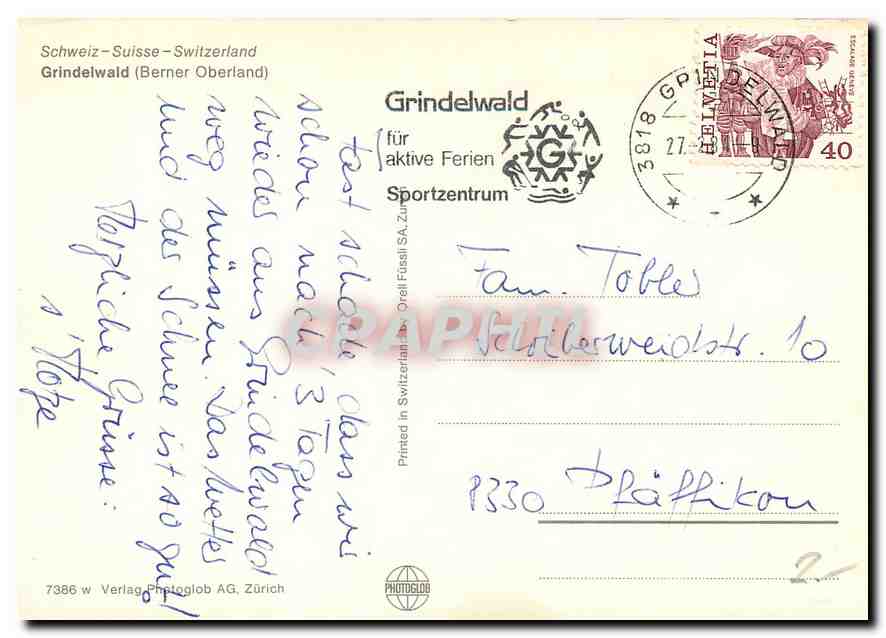 Schweiz – Suisse – Switzerland
Grindelwald (Berner Oberland)
fast schade dass wir
schon nach 3 Tagen
wieder aus Grindelwald
weg müssen. Das Wetter
und der Schnee ist so gut!
Herzliche Grüsse:
s'Hotze
7386 w Verlag Photoglob AG, Zürich
Printed in Switzerland by Orell Füssli SA, Zürich
PHOTOGLOB
Grindelwald
für
aktive Ferien
Sportzentrum
G
3818 GRINDELWALD
HELVETIA
ESCALADE GENÈVE
40
CPAPHIL
Fam. Tobler
Schreiberweidstr. 10
8330 Pfäffikon
2.-